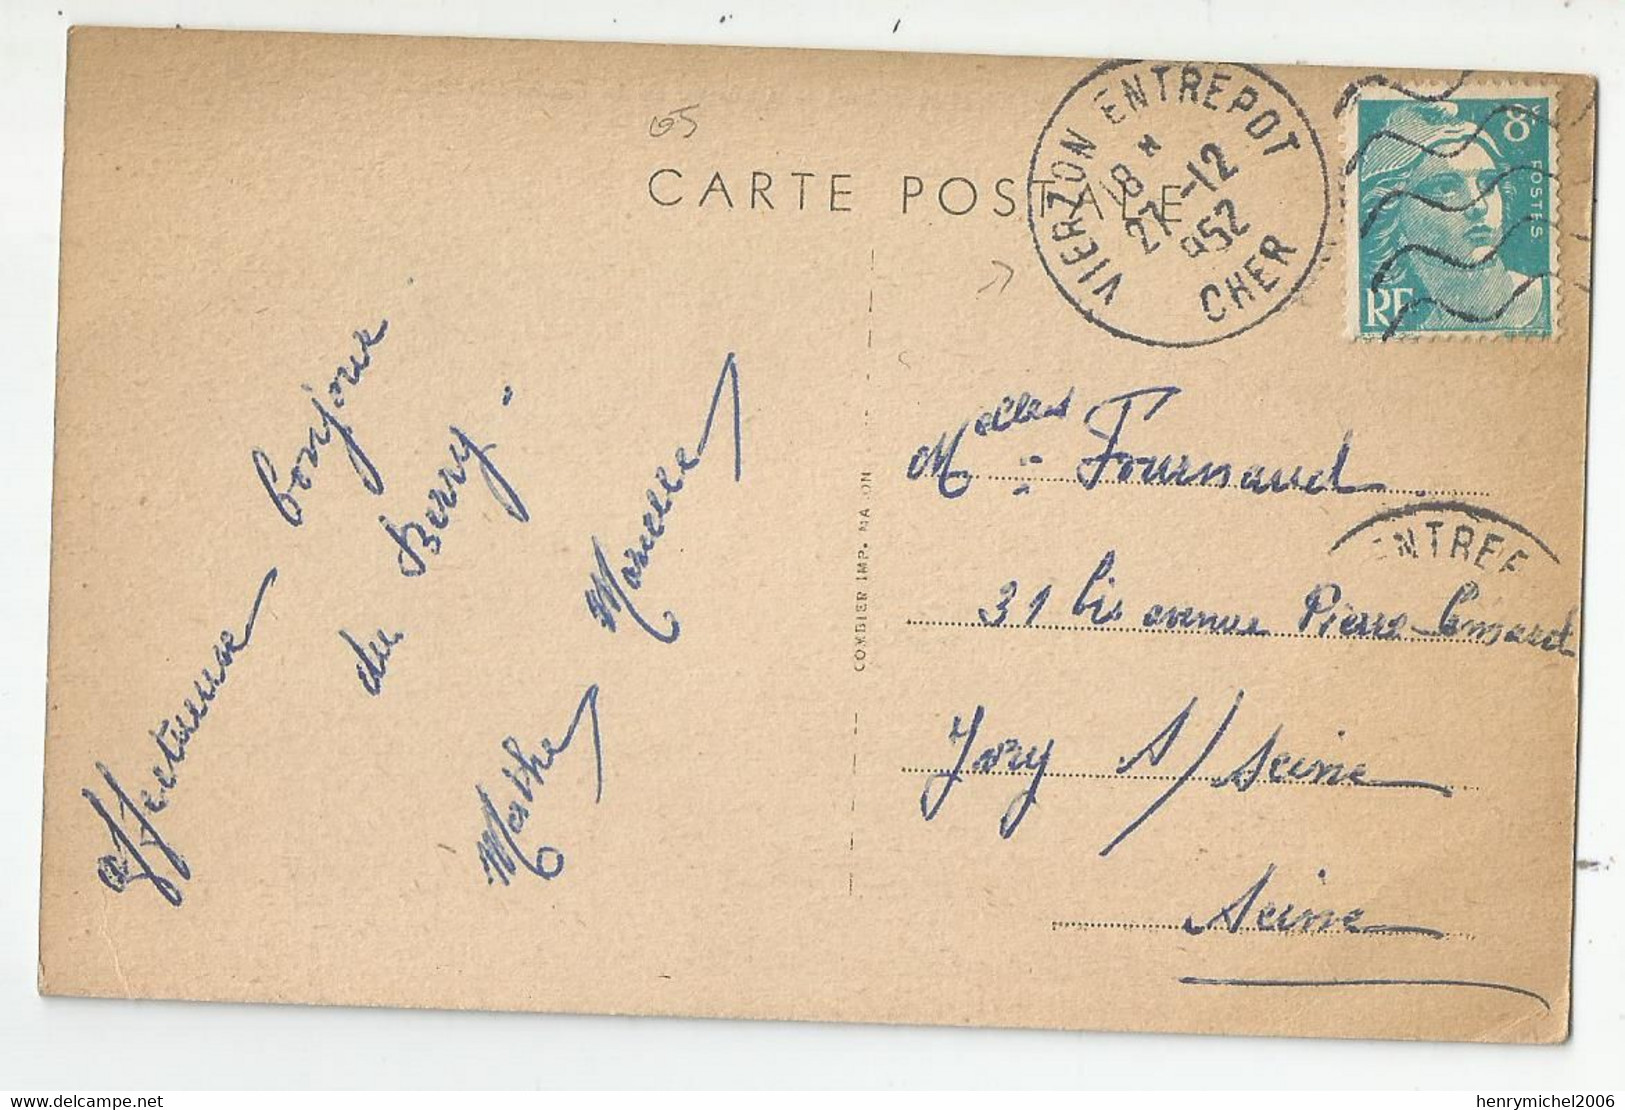 65
CARTE POSTALE
VIERZON ENTREPOT
18 H
27-12
1952
CHER
8F
POSTES
RF
affectueuse bonjour
du Berry.
Marthe Marcelle
COMBIER IMP. MACON
Melles Fournaud
ENTREE
31 bis avenue Pierre
Ivry s/ Seine
Seine
henrymichel2006